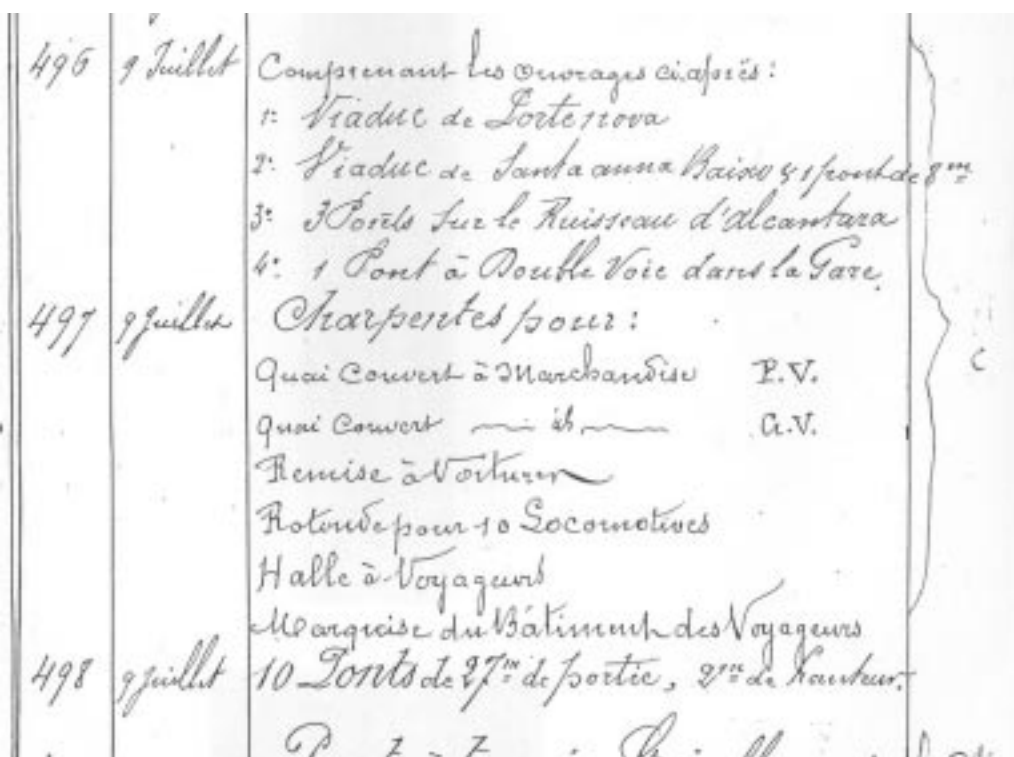 496 9 Juillet Comprenant les Ouvrages ci après :
1º Viaduc de Portenova
2º Viaduc de Santa anna Baixo & 1 pont de 8 m
3º 3 Ponts sur le Ruisseau d'Alcantara
4º 1 Pont à Double Voie dans la Gare.
497 9 Juillet Charpentes pour :
Quai Couvert à Marchandise P.V.
Quai Couvert — id — G.V.
Remise à Voitures
Rotonde pour 10 Locomotives
Halle à Voyageurs
Marquise du Bâtiment des Voyageurs
498 9 Juillet 10 Ponts de 27 m de portée, 2 m de hauteur.